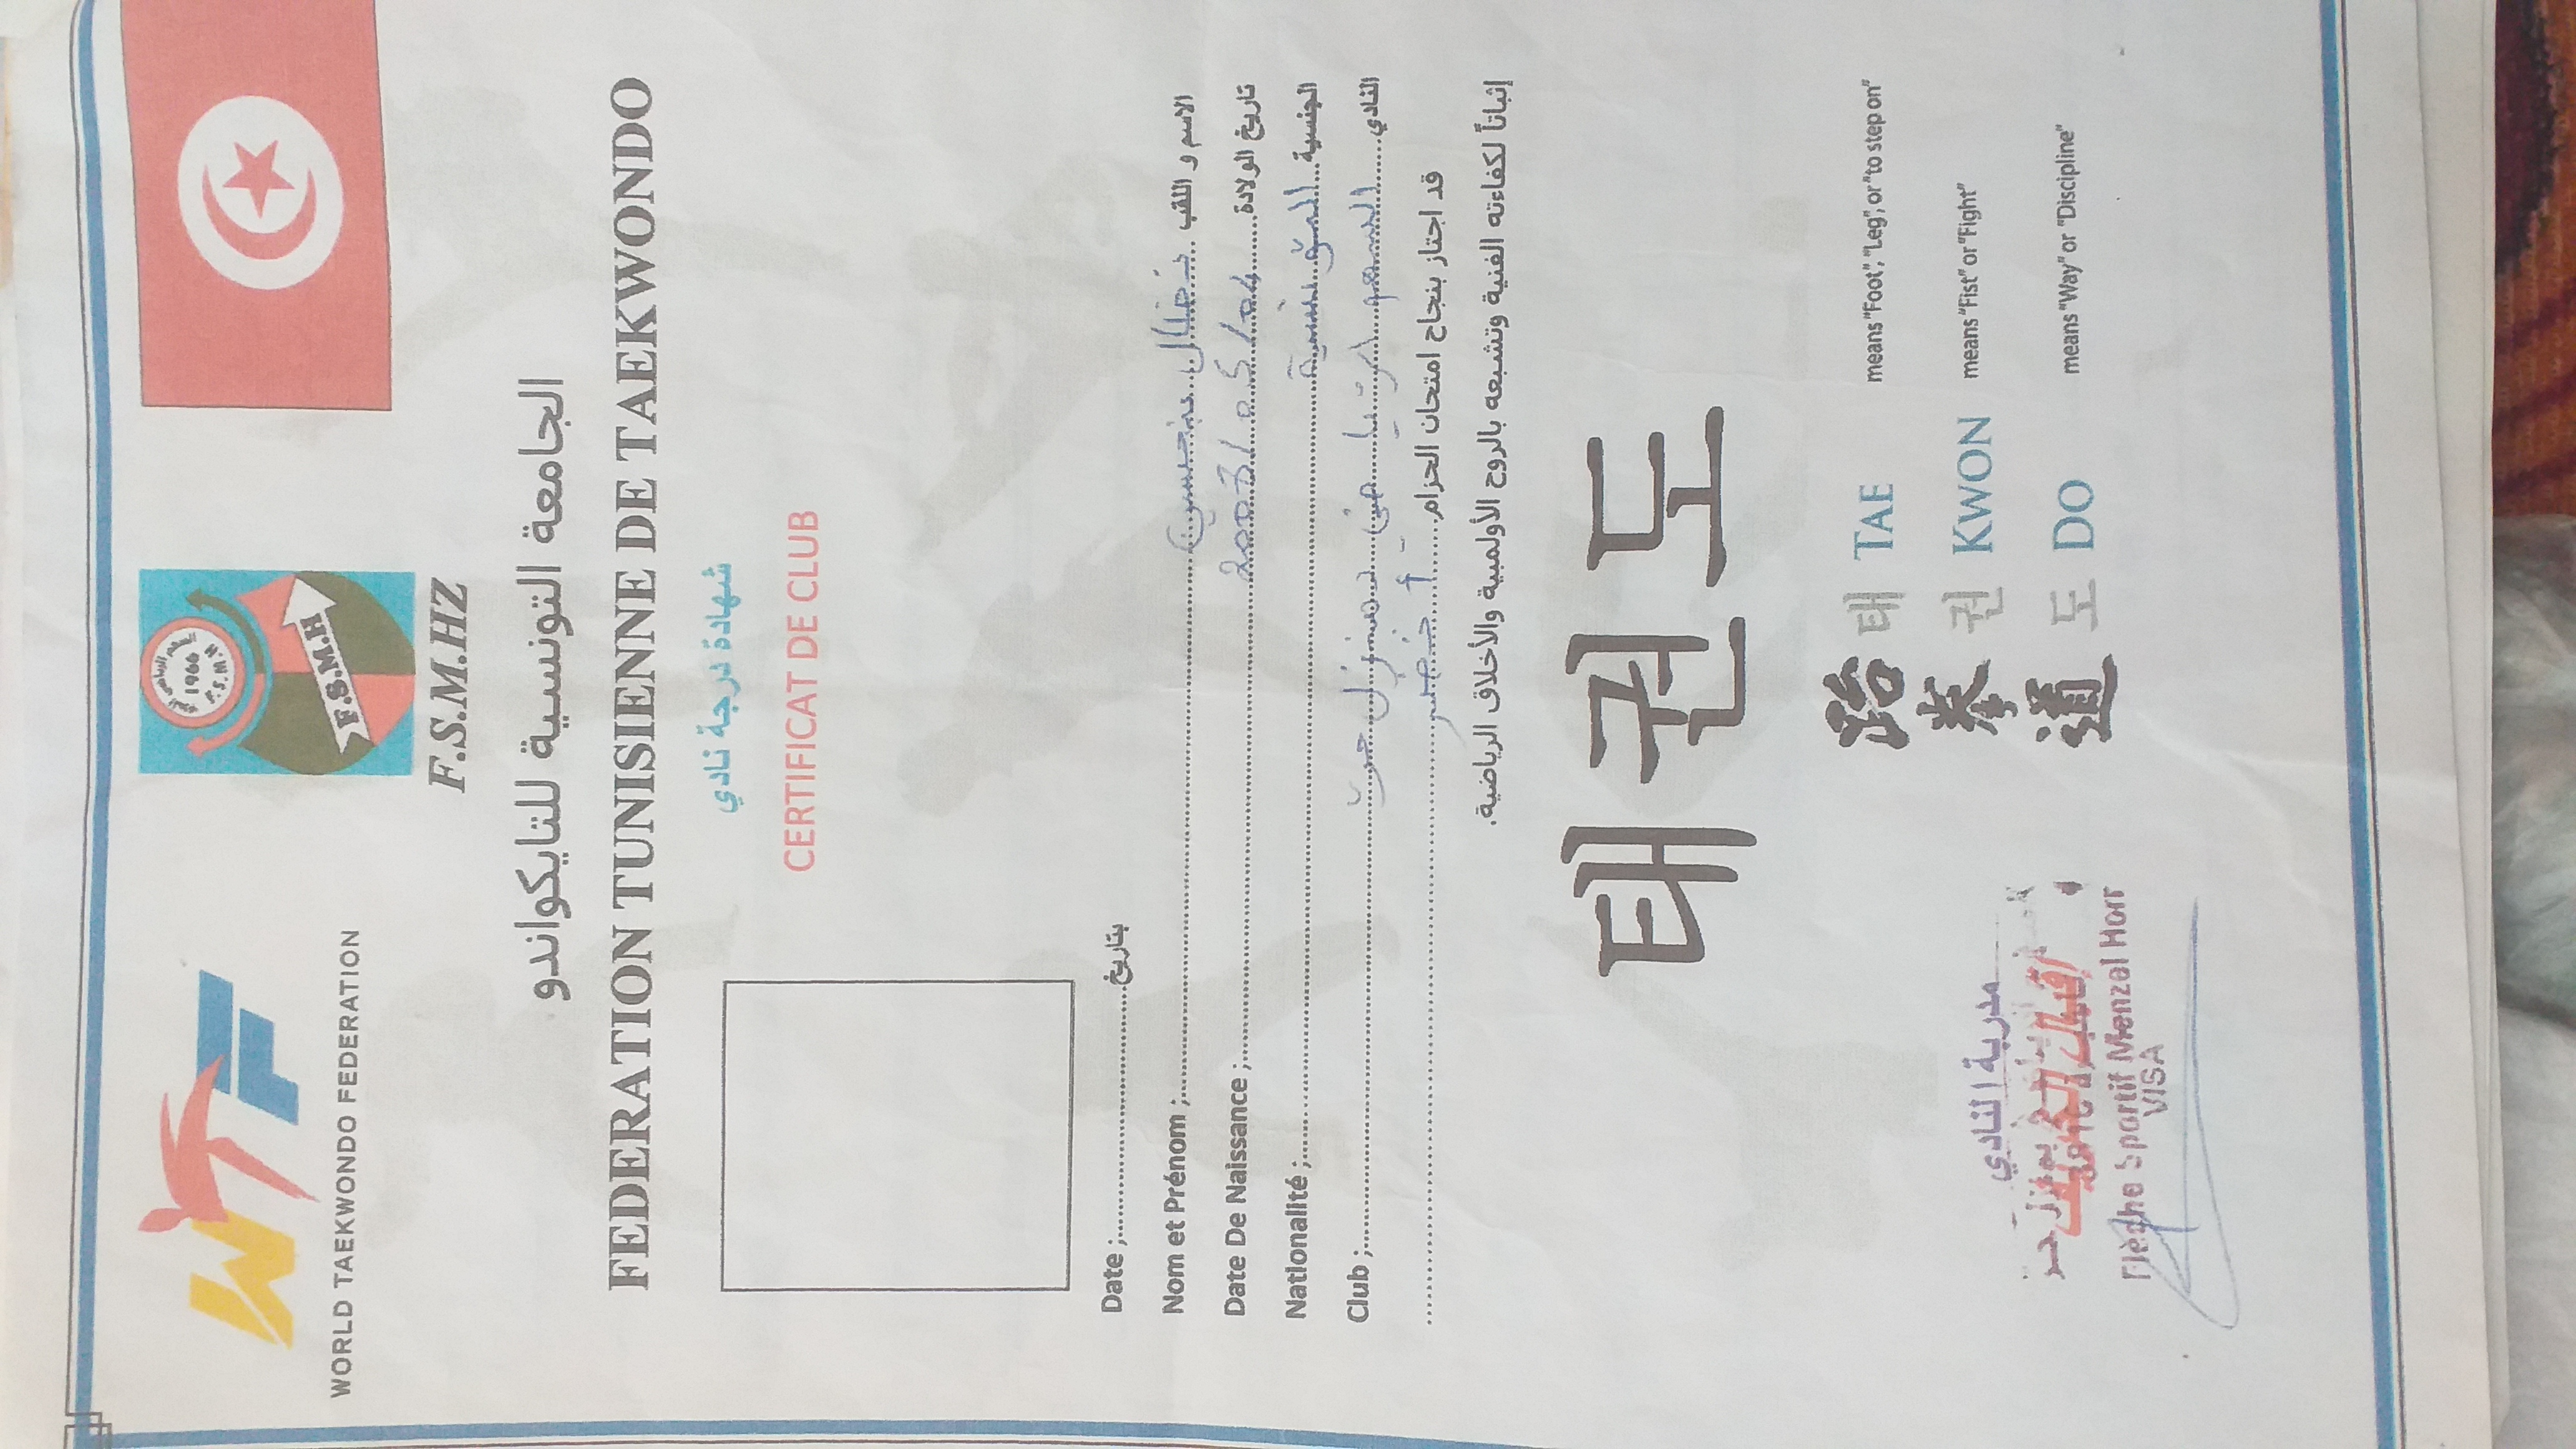 WTF
WORLD TAEKWONDO FEDERATION
1966
F.S.M.H
F.S.M.H
F.S.M.HZ
الجامعة التونسية للتايكواندو
FEDERATION TUNISIENNE DE TAEKWONDO
شهادة درجة نادي
CERTIFICAT DE CLUB
Date ;.......... بتاريخ
Nom et Prénom ;.......... نضال بنحسين .......... الاسم و اللقب
Date De Naissance ;.......... 2003/05/04 .......... تاريخ الولادة
Nationalité ;.......... التونسية .......... الجنسية
Club ;.......... الرياضي بمنزل حرّ .......... النادي
قد اجتاز بنجاح امتحان الحزام .......... أخضر ..........
إثباتاً لكفاءته الفنية وتشبعه بالروح الأولمبية والأخلاق الرياضية.
태권도
跆 태 TAE means "Foot", "Leg", or "to step on"
拳 권 KWON means "Fist" or "Fight"
道 도 DO means "Way" or "Discipline"
مدربة النادي
Flèche Sportif Menzel Horr
VISA